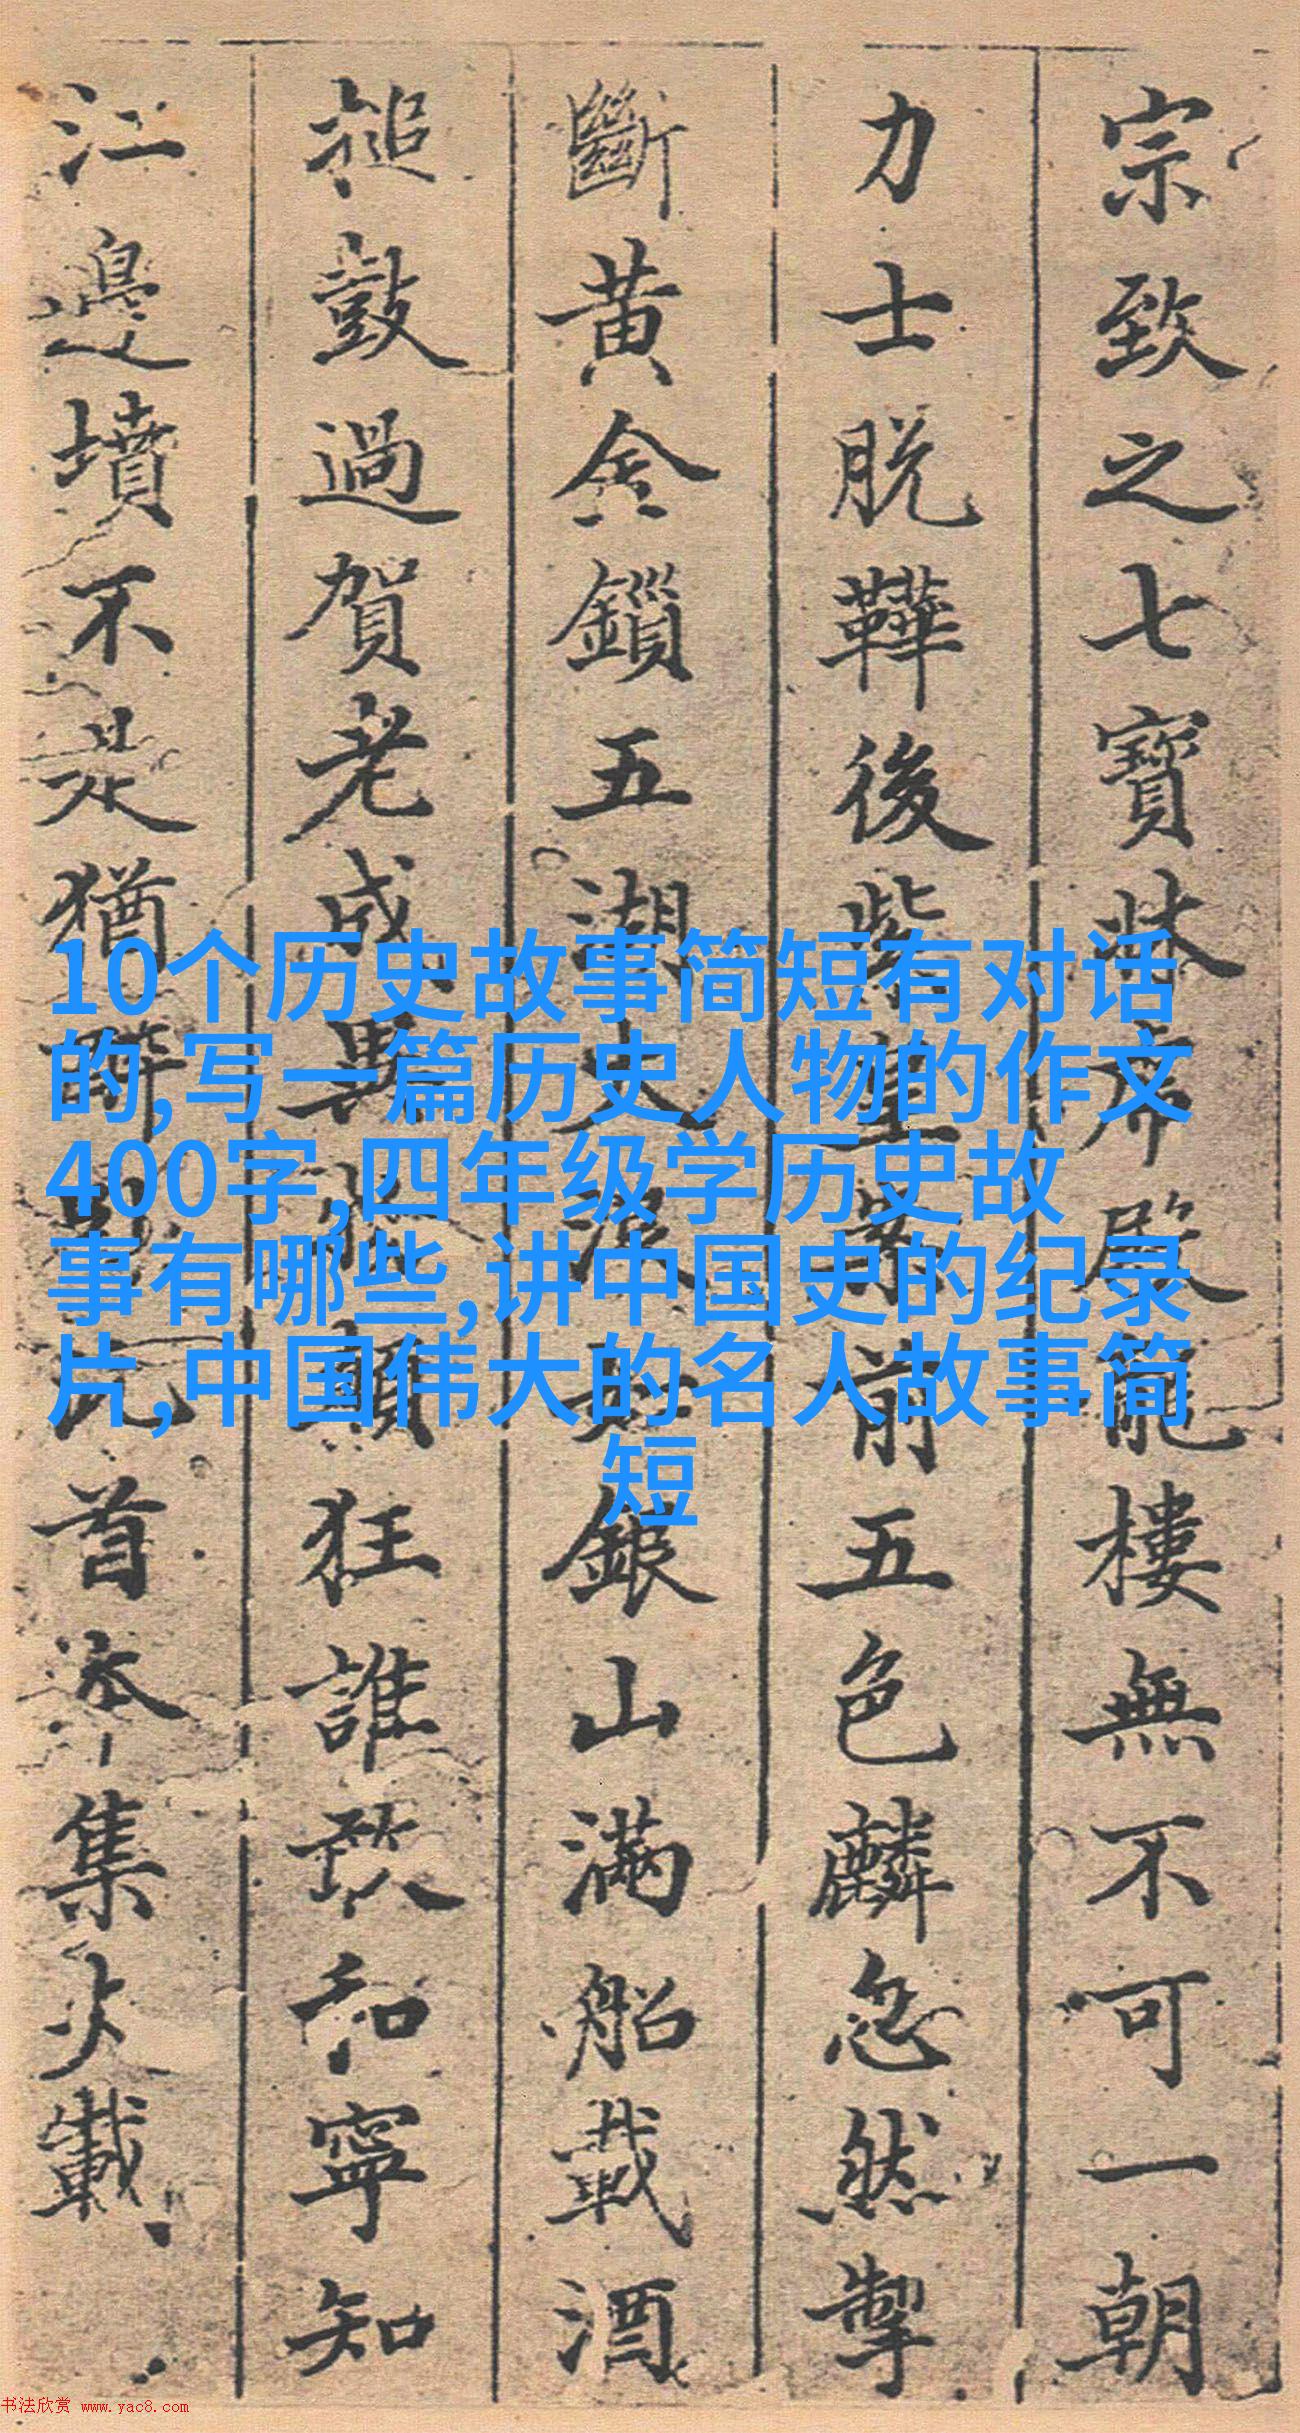 宗致之七寶牀席殿龍樓無不可一朝
力士脱鞾後紫皇案前五色麟忽然掣
斷黄金鎖五湖大浪如銀山滿船載酒
搥鼓過賀老成異物顛狂誰敢和寧知
江邊墳不是猶醉眠此首本集載
10个历史故事简短有对话
的,写一篇历史人物的作文
400字,四年级学历史故
事有哪些,讲中国史的纪录
片,中国伟大的名人故事简
短
书法欣赏 www.yac8.com